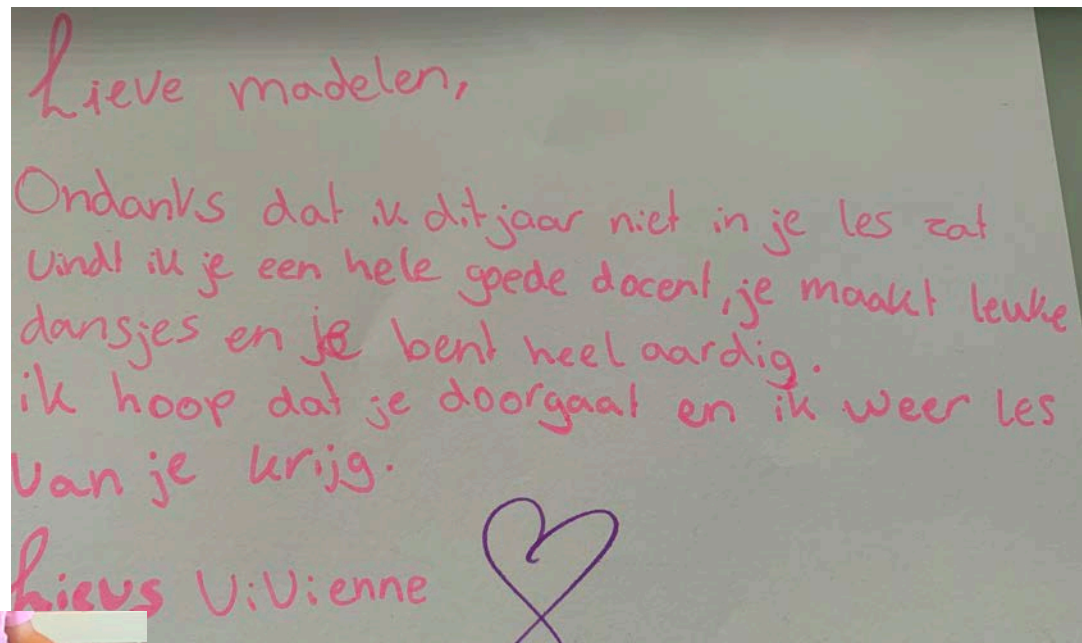 Lieve madelen,
Ondanks dat ik dit jaar niet in je les zat
Vindt ik je een hele goede docent, je maakt leuke
dansjes en je bent heel aardig.
ik hoop dat je doorgaat en ik weer les
Van je krijg.
Lievs ViVienne